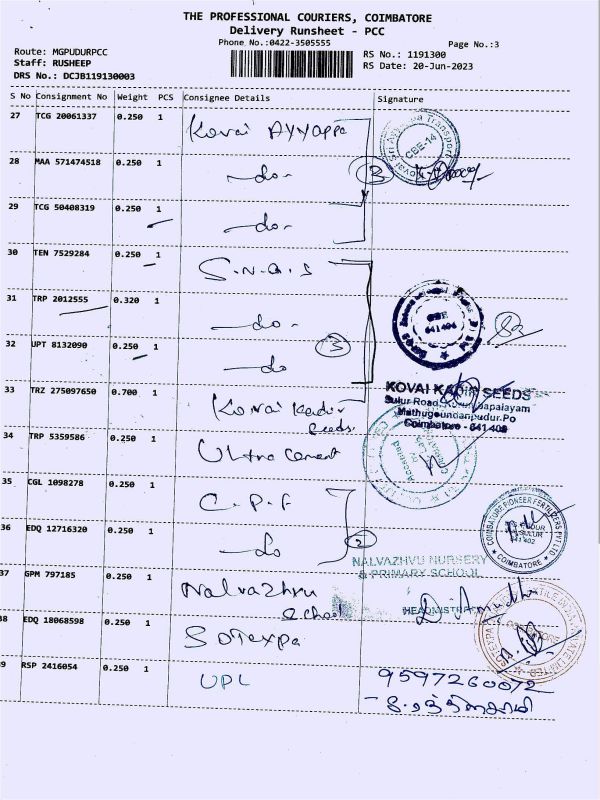 THE PROFESSIONAL COURIERS, COIMBATORE
Delivery Runsheet - PCC
Phone No.:0422-3505555
Page No.:3
Route: MGPUDURPCC
Staff: RUSHEEP
DRS No.: DCJB119130003
RS No.: 1191300
RS Date: 20-Jun-2023
S No Consignment No Weight PCS Consignee Details Signature
27 TCG 20061337 0.250 1 Kovai Ayyappa
CBE-14
28 MAA 571474518 0.250 1 -do-
3
29 TCG 50408319 0.250 1 -do-
30 TEN 7529284 0.250 1 S.N.Q.S
31 TRP 2012555 0.320 1 -do-
CBE
641404
32 UPT 8132090 0.250 1 -do
3
33 TRZ 275097650 0.700 1 Kovai Kadir Seeds
KOVAI KADIR SEEDS
Sulur Road,
Mathugoundanpudur.Po
Coimbatore - 641 406
34 TRP 5359586 0.250 1 Ultra Cement
35 CGL 1098278 0.250 1 C.P.F
COIMBATORE PIONEER FERTILIZERS PVT LTD
SULUR
641 402
COIMBATORE
36 EDQ 12716320 0.250 1 -do
2
NALVAZHVU NURSERY
& PRIMARY SCHOOL
37 GPM 797185 0.250 1 Nalvazhvu School
HEADMISTRESS
38 EDQ 18068598 0.250 1 Sotexpa
39 RSP 2416054 0.250 1 UPL
9597260072